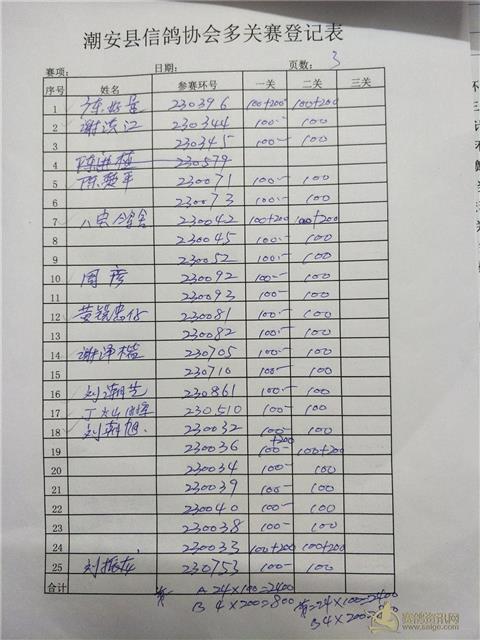 潮安县信鸽协会多关赛登记表
赛项: 日期: 页数: 3
序号 姓名 参赛环号 一关 二关 三关
1 230396 100+200 100+200
2 谢洪江 230344 100- 100
3 230345 100- 100
4 230579
5 陈楚平 230071 100- 100
6 230073 100- 100
7 八点鸽舍 230042 100+200 100+200
8 230045 100- 100
9 230052 100- 100
10 周彦 230092 100- 100
11 230093 100- 100
12 230081 100- 100
13 230082 100- 100
14 230705 100- 100
15 230710 100- 100
16 刘潮先 230861 100- 100
17 230510 100- 100
18 刘朝旭. 230032 100- 100
19 230036 100+200 100+200
20 230034 100- 100
21 230039 100- 100
22 230040 100- 100
23 230038 100- 100
24 230033 100+200 100+200
25 刘振东 230753 100- 100
合计 A 24×100=2400 24×100=2400
B 4×200=800 B 4×200=
赛鸽资讯网
www.saige.com